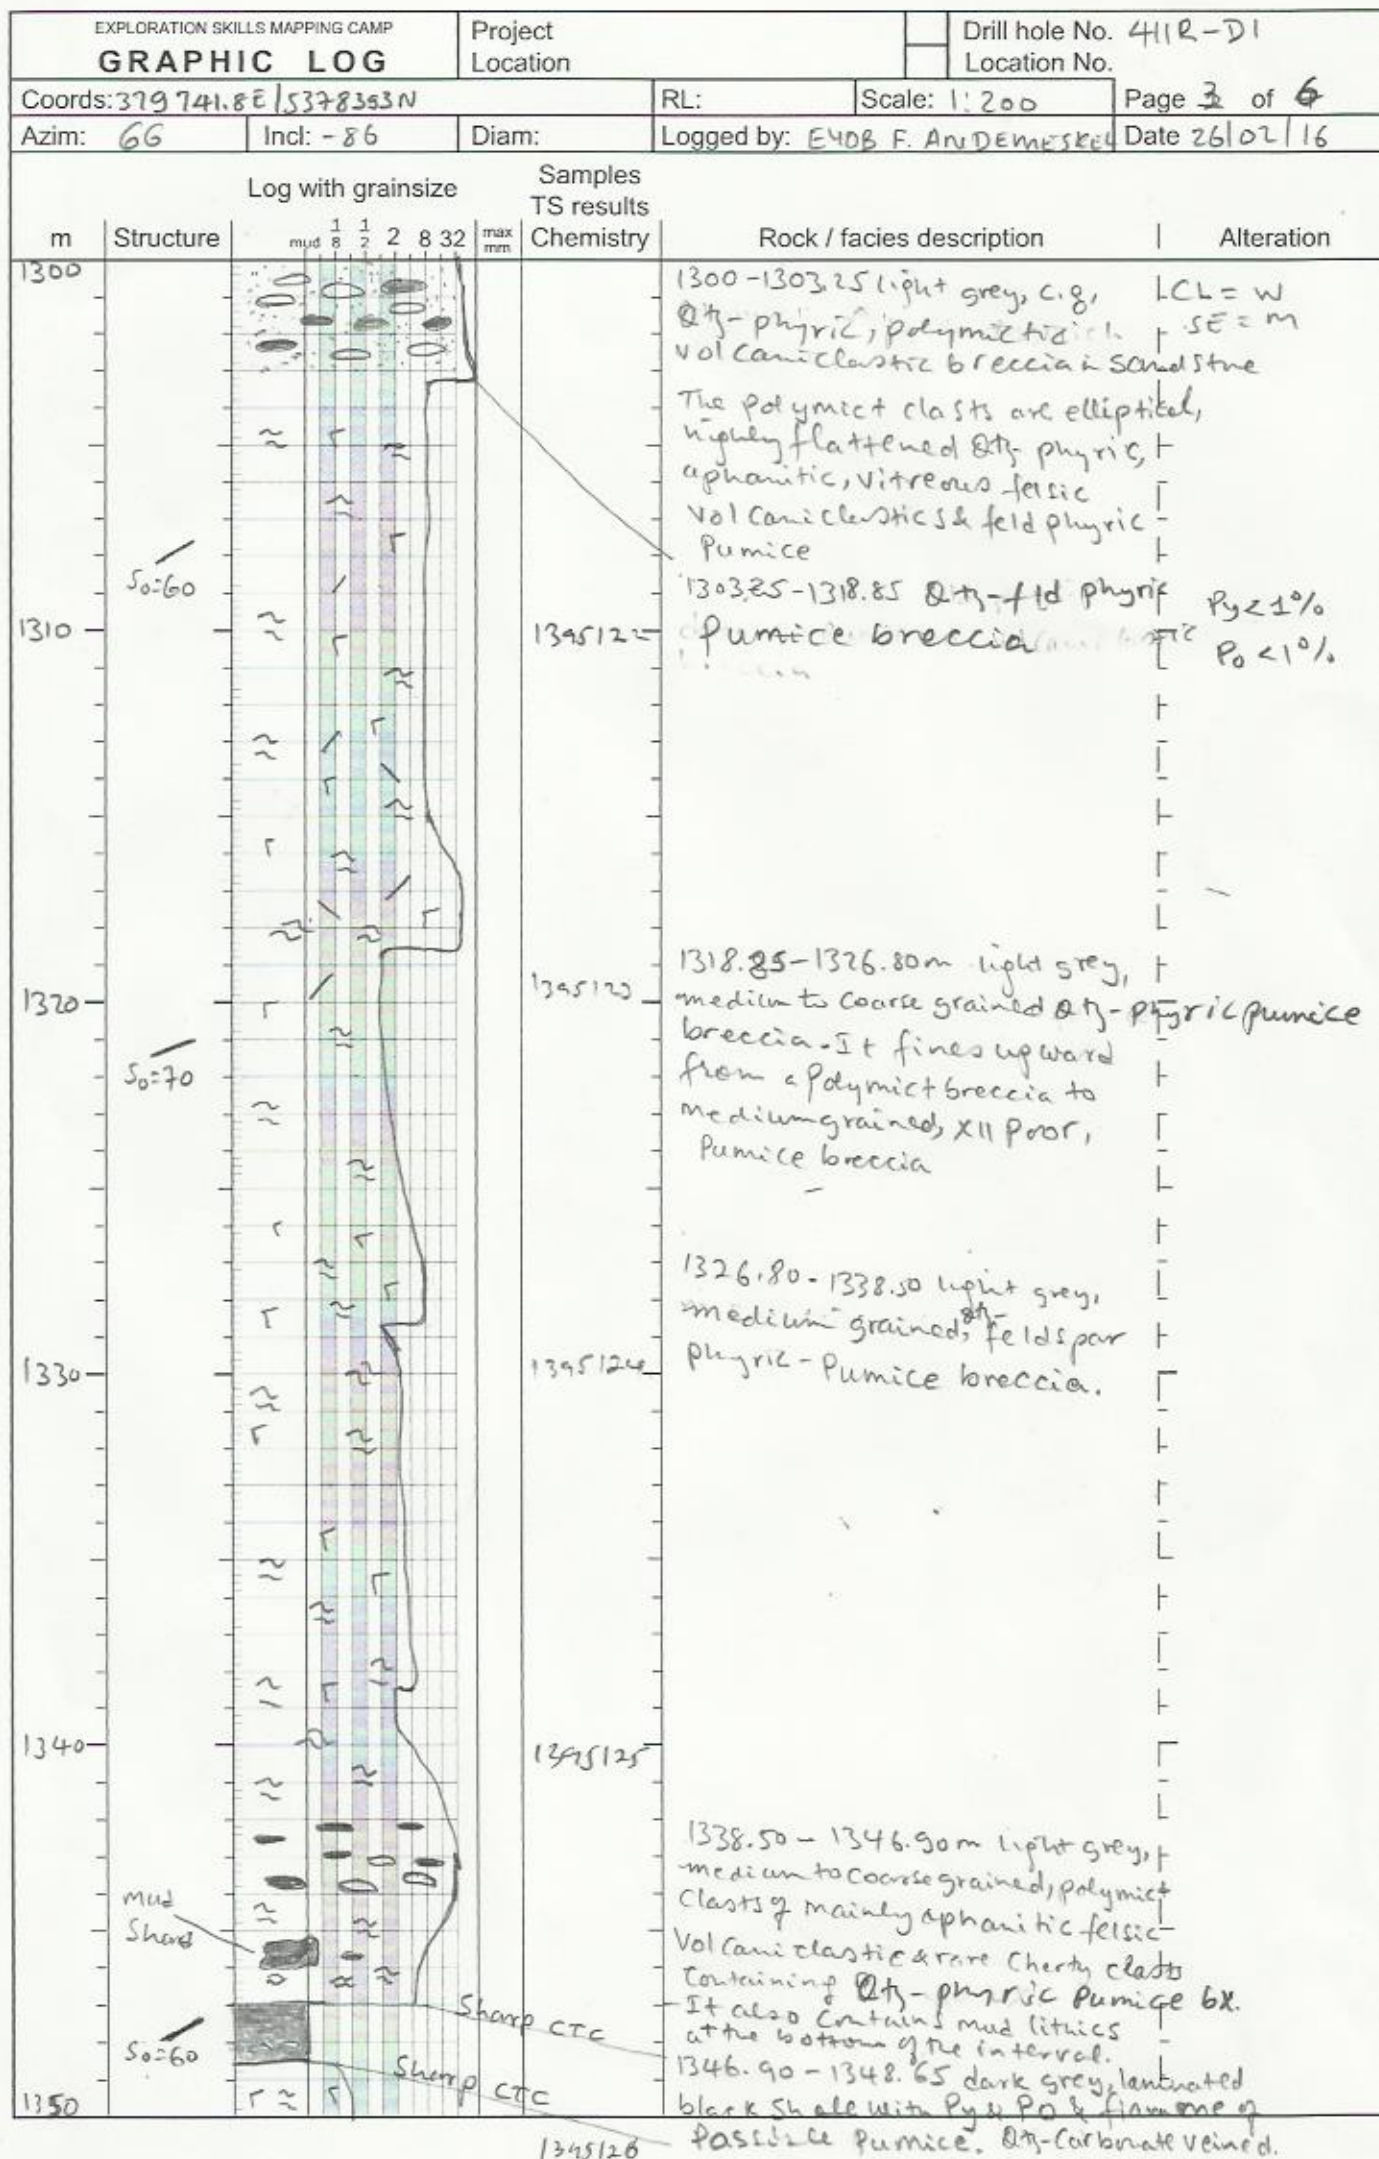 EXPLORATION SKILLS MAPPING CAMP
GRAPHIC LOG
Project
Location
Drill hole No. 411R-D1
Location No.
Coords: 379 741.8E / 5378393N
RL:
Scale: 1:200
Page 3 of 6
Azim: 66
Incl: -86
Diam:
Logged by: EYOB F. ANDEMESKEL
Date 26/02/16
m
Structure
Log with grainsize
mud 1/8 1/2 2 8 32
max mm
Samples
TS results
Chemistry
Rock / facies description
Alteration
1300
1300-1303.25 light grey, c.g,
Qtz-phyric, polymictic
volcaniclastic breccia in sandstne
LCL = W
SE = m
The polymict clasts are elliptical,
highly flattened Qtz-phyric,
aphanitic, vitreous felsic
volcaniclastics & feld phyric
Pumice
S0=60
1303.25-1318.85 Qtz-fld phyric
Pumice breccia
Py<1%
Po<1%
1310
1395122
1318.85-1326.80m light grey,
medium to coarse grained Qtz-phyric pumice
breccia. It fines upward
from a polymict breccia to
medium grained, xll poor,
Pumice breccia
1320
1395123
S0=70
1326.80-1338.50 light grey,
medium grained, qtz-feldspar
phyric-Pumice breccia.
1330
1395124
1340
1395125
1338.50-1346.90m light grey,
medium to coarse grained, polymict
clasts of mainly aphanitic felsic
Volcaniclastic & rare Cherty clasts
containing Qtz-phyric pumice bx.
It also contains mud lithics
at the bottom of the interval.
mud
Shard
Sharp CTC
S0=60
Sharp CTC
1346.90-1348.65 dark grey, laminated
black shale with Py & Po & fiamme of
Possible Pumice. Qtz-Carbonate veined.
1350
1395126